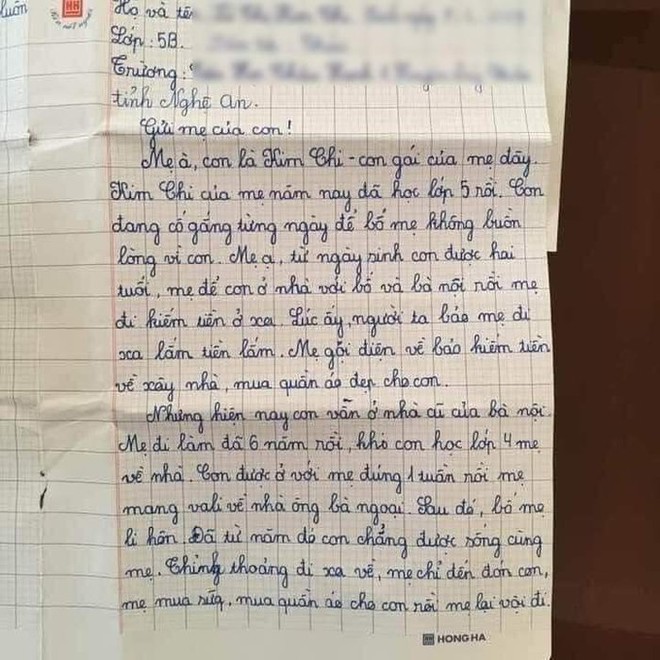 luôn
Họ và tên
Lớp: 5B.
Trường:
tỉnh Nghệ An.
Gửi mẹ của con!
Mẹ à, con là Kim Chi - con gái của mẹ đây.
Kim Chi của mẹ năm nay đã học lớp 5 rồi. Con
đang cố gắng từng ngày để bố mẹ không buồn
lòng vì con. Mẹ ạ, từ ngày sinh con được hai
tuổi, mẹ để con ở nhà với bố và bà nội rồi mẹ
đi kiếm tiền ở xa. Lúc ấy, người ta bảo mẹ đi
xa lắm tiền lắm. Mẹ gọi điện về bảo kiếm tiền
về xây nhà, mua quần áo đẹp cho con.
Nhưng hiện nay con vẫn ở nhà cũ của bà nội.
Mẹ đi làm đã 6 năm rồi, khi con học lớp 4 mẹ
về nhà. Con được ở với mẹ đúng 1 tuần rồi mẹ
mang vali về nhà ông bà ngoại. Sau đó, bố mẹ
li hôn. Đã từ năm đó con chẳng được sống cùng
mẹ. Thỉnh thoảng đi xa về, mẹ chỉ đến đón con,
mẹ mua sữa, mua quần áo cho con rồi mẹ lại vội đi.
HH HONG HA